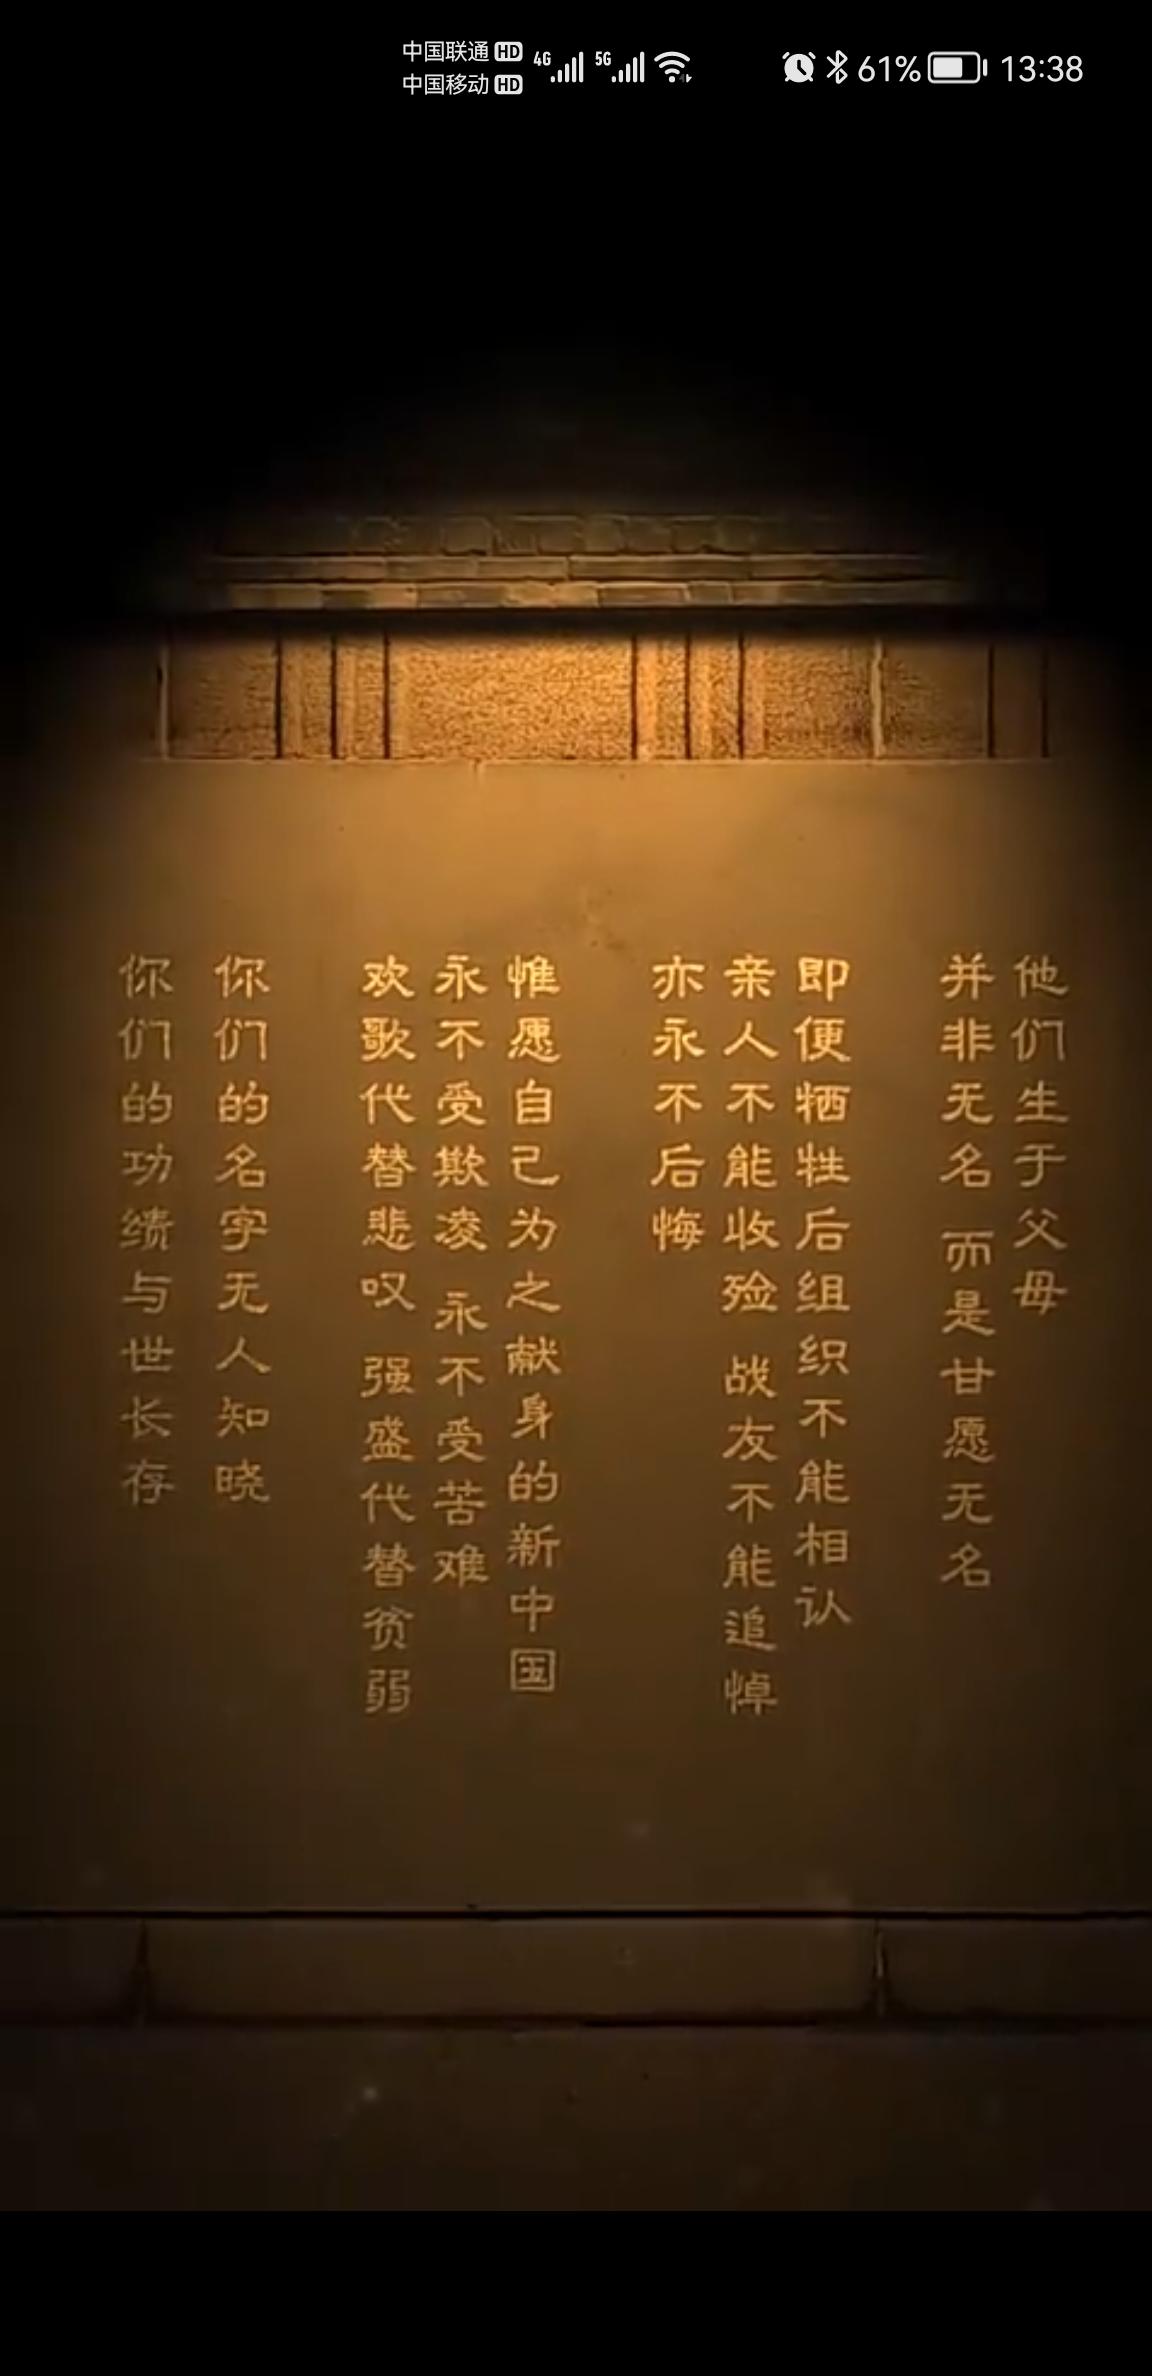 中国联通 HD
中国移动 HD
4G
5G
61%
13:38
他们生于父母
并非无名 而是甘愿无名
即便牺牲后组织不能相认
亲人不能收殓 战友不能追悼
亦永不后悔
惟愿自己为之献身的新中国
永不受欺凌 永不受苦难
欢歌代替悲叹 强盛代替贫弱
你们的名字无人知晓
你们的功绩与世长存